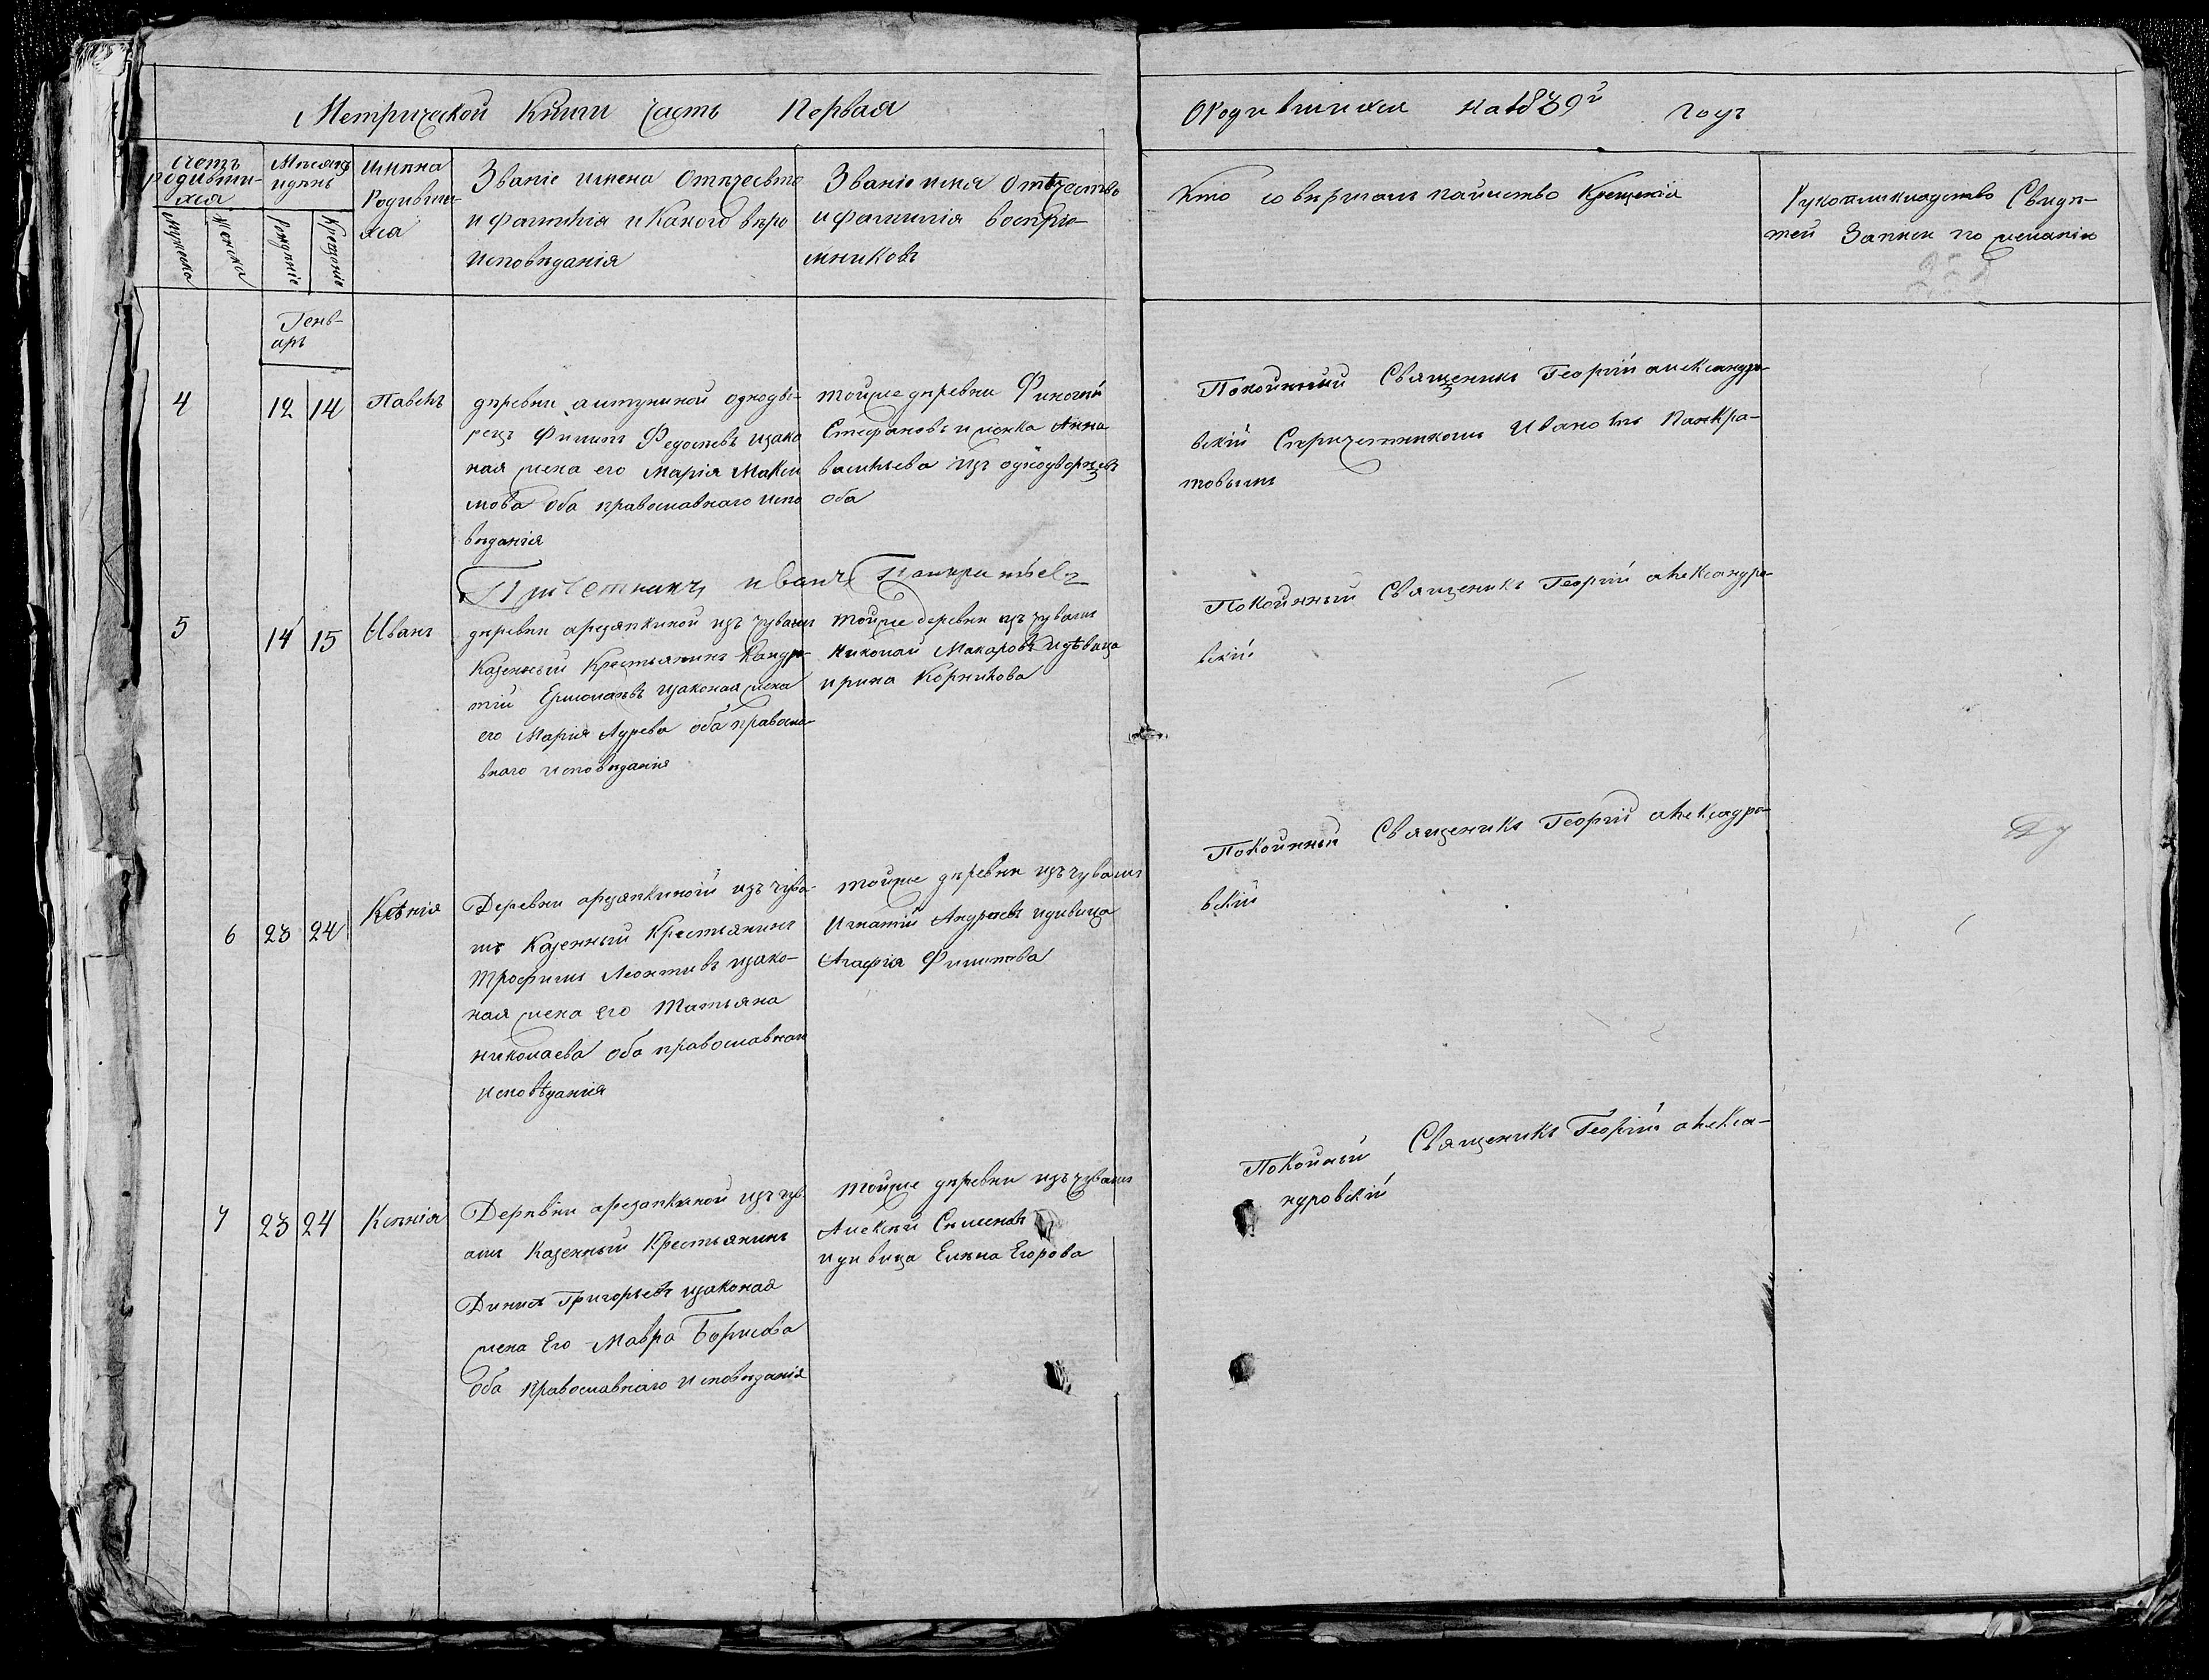 Метрической Книги часть Первая
Ородившихся на 1839й годъ
счетъ родивши-хся
Мужеска
Женска
Месяцъ идень
Рождение
Крещение
Имена
Родивши-
хся
Званіе имена Отечество
и фамилія и Какого веро
исповеданія
Званіе имя Отечество
и фамилія воспріе-
мниковъ
Кто совершалъ таинство Крещенія
Рукоприкладство Свиде-
телей Записи по желанію
Генв-
арь
4
12 14
Павелъ
деревни однодво-
рецъ Филипъ Федосеевъ изако
ная жена его Марія Макси
мова оба православнаго испо
веданія
тойже деревни
Стефановъ и женка Анна
васильева изъ однодворцевъ
оба
Покойный Священикъ Георгій александро-
вскій Спричетникомъ Иваномъ Панкра-
товымъ
Причетникъ иванъ Панкратьевъ
5
14 15
Иванъ
деревни арезяпкиной изъ чувашъ
Казенный Крестьянинъ
Ермолаевъ изаконая жена
его Марія оба правосла-
внаго исповеданія
тойже деревни изъ чувашъ
Николай Макаровъ идѣвица
ирина Корнилова
Покойнный Священикъ Георгій александро-
вскій
6
23 24
Ксѣнія
Деревни арезяпкиной изъ чува-
шъ Казенный Крестьянинъ
Трофимъ Леонтивъ изако-
ная жена его Татьяна
николаева оба православнаи
исповѣданія
тойже деревни изъ чувашъ
Игнатій Андреевъ идивица
Агафія Филипова
Покойнный Священикъ Георгій алексадро-
вскій
7
23 24
Ксенія
Деревни арезапкиной изъ чув-
ашъ Казенный Крестьянинъ
Динисъ Григорьевъ изаконая
жена Его Мавра Борисова
оба православнаго исповеданія
тойже деревни изъ чувашъ
Алексей Семеновъ
идивица Елена Егорова
Покойный Священикъ Георгій алекса-
ндровскій